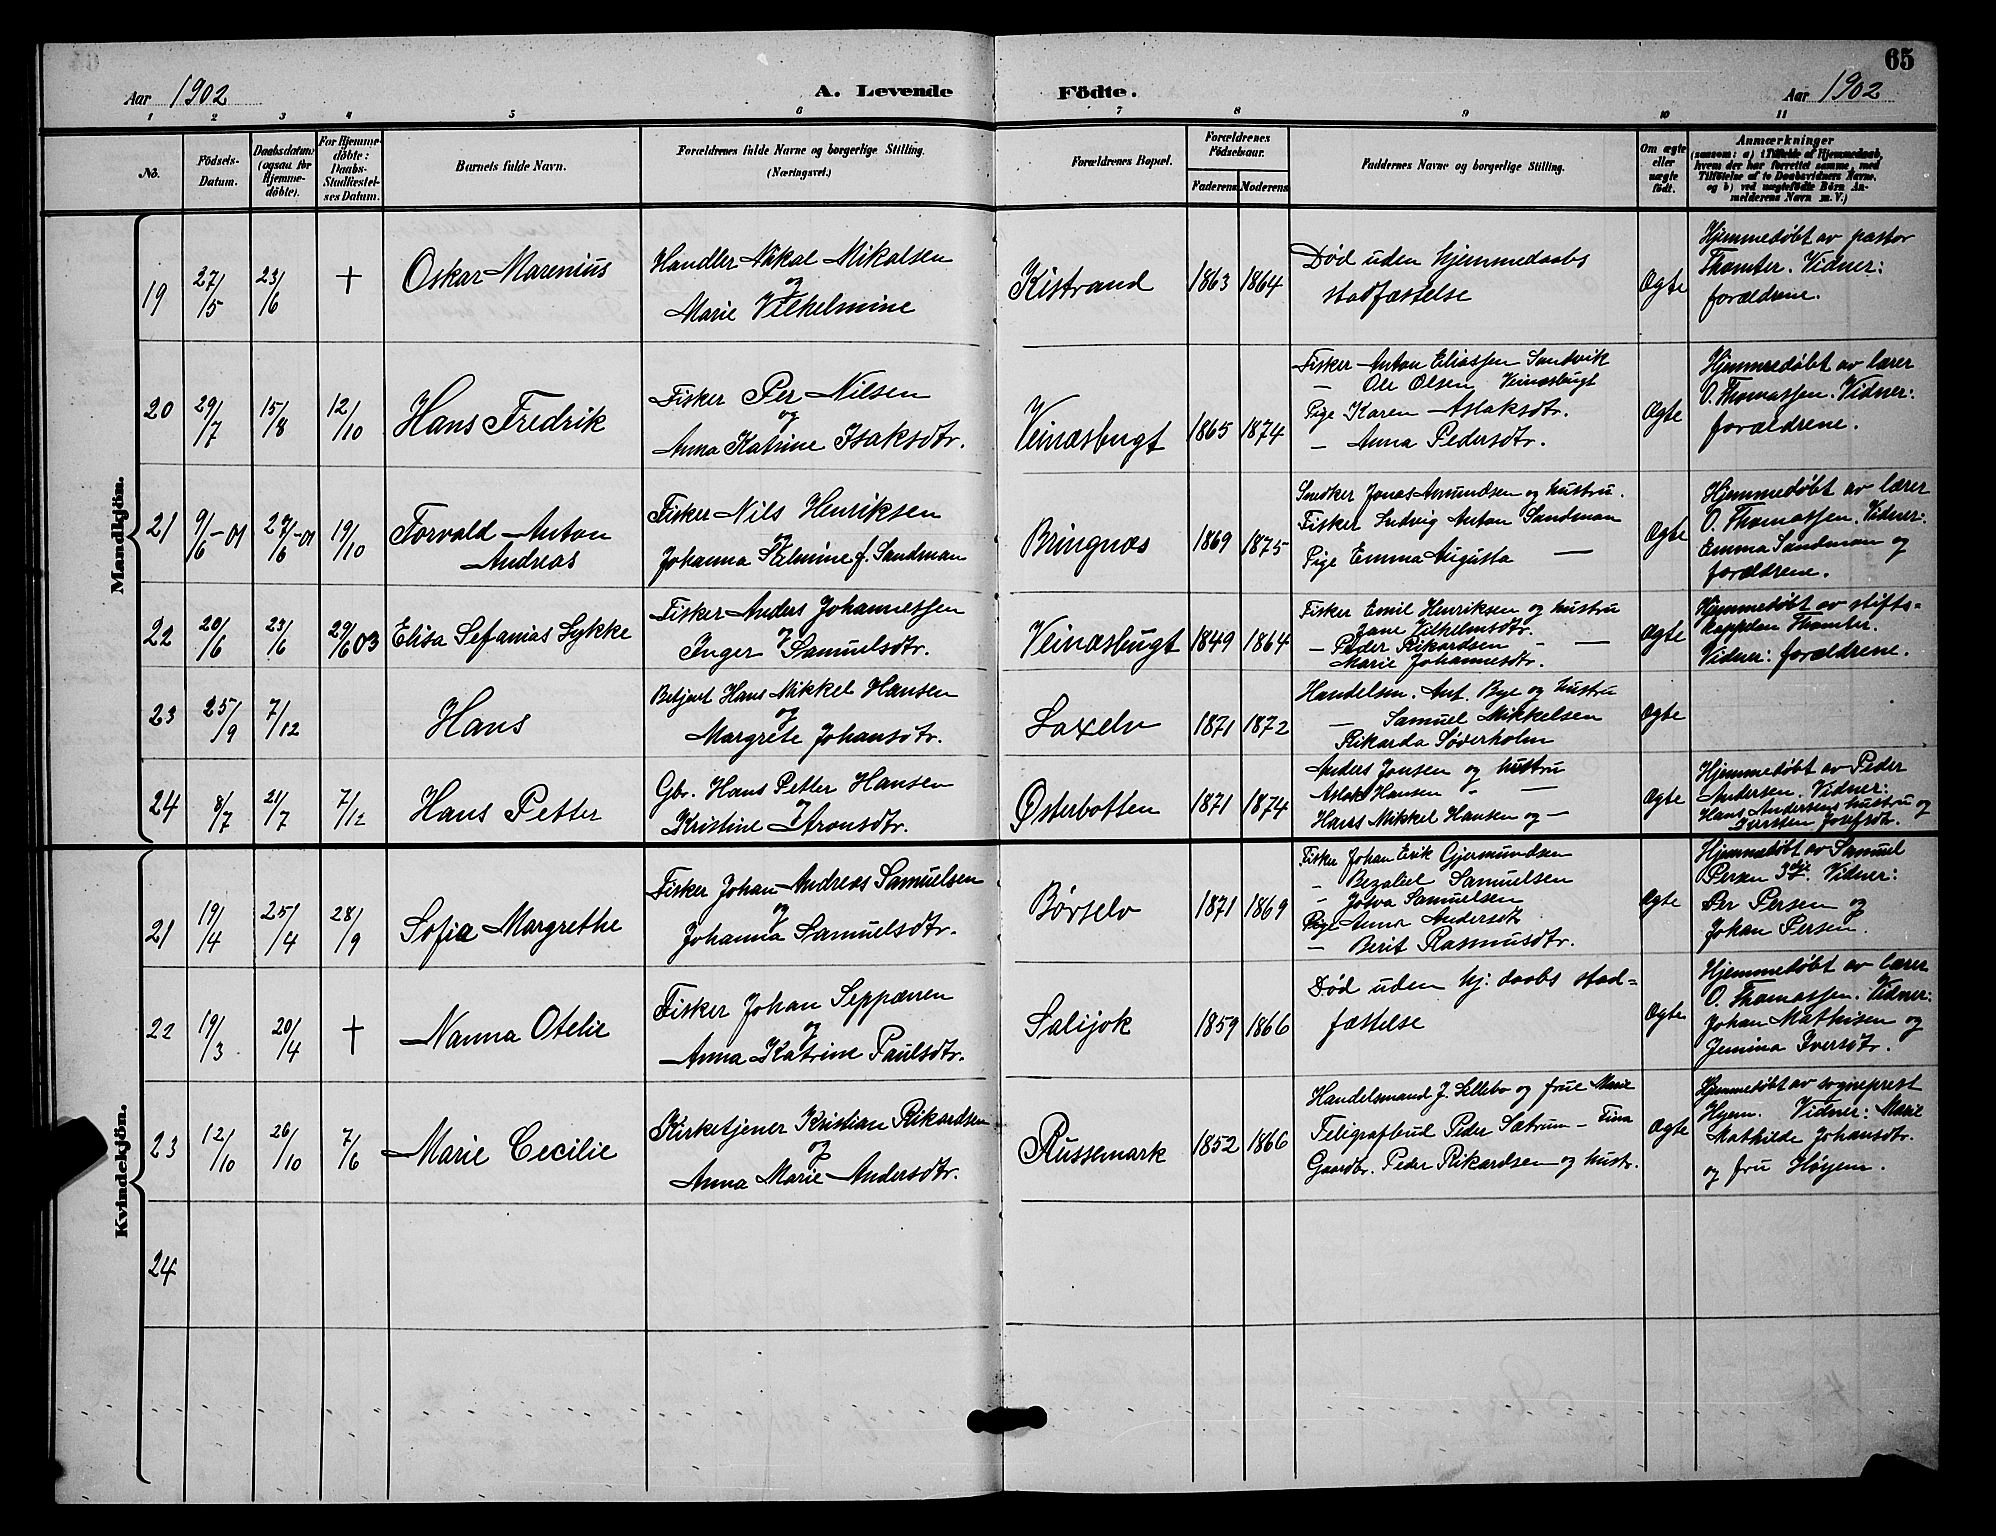 65
Aar 1902
A. Levende
Födte.
Aar 1902
1 2 3 4 5 6 7 8 9 10 11
No.
Födsels-
Datum.
Daabsdatum
(ogsaa for
Hjemme-
döbte).
For Hjemme-
döbte:
Daabs-
Stadfæstel-
ses Datum.
Barnets fulde Navn.
Forældrenes fulde Navne og borgerlige Stilling.
(Næringsvei.)
Forældrenes Bopæl.
Forældrenes
Födselsaar.
Faderens
Moderens
Faddernes Navne og borgerlige Stilling.
Om ægte
eller
uægte
födt.
Anmærkninger
(saasom: a) i Tilfælde af Hjemmedaab,
hvem der har forrettet samme, med
Tilföielse af to Daabsvidners Navne,
og b) ved uægtefödte Börn An-
melderens Navn m. V.)
Mandkjön.
19
27/5
23/6
†
Oskar Marenius
Handler Nikal Mikalsen
og
Marie Vilhelmine
Kistrand
1863
1864
Død uden hjemmedaabs
stadfæstelse
Ægte
Hjemmedøbt av pastor
Thomter. Vidner:
forældrene.
20
29/7
15/8
12/10
Hans Fredrik
Fisker Per Nilsen
og
Anna Katrine Isaksdtr.
Veinæsbugt
1865
1874
Fisker Anton Eliassen Sandvik
— Ole Olsen Veinæsbugt
Pige Karen Aslaksdtr.
— Anna Pedersdtr.
Ægte
Hjemmedøbt av lærer
O. Thomassen. Vidner:
forældrene.
21
9/6-01
27/6-01
19/10
Torvald Anton
Andreas
Fisker Nils Henriksen
og
Johanna Vilelmine f. Sandman
Bringnæs
1869
1875
Snedker Jonas Amundsen og hustru.
Fisker Ludvig Anton Sandman
Pige Emma Augusta —
Ægte
Hjemmedøbt av lærer
O. Thomassen. Vidner:
Emma Sandman og
forældrene.
22
20/6
23/6
29/6 03
Elisa Sefanias Lykke
Fisker Anders Johannessen
og
Inger Samuelsdtr.
Veinæsbugt
1849
1864
Fisker Emil Henriksen og hustru
Jane Vilhelmsdtr.
— Peder Rikardsen - —
Marie Johannesdtr.
Ægte
Hjemmedøbt av stifts-
kappelan Thomter.
Vidner: forældrene.
23
25/9
7/12
Hans
Betjent Hans Mikkel Hansen
og
Margrete Johansdtr.
Laxelv
1871
1872
Handelsm. Ant. Bye og hustru
— Samuel Mikkelsen
Rikarda Søderholm
Ægte
24
8/7
21/7
7/12
Hans Petter
Gbr. Hans Petter Hansen
og
Kristine Aronsdtr.
Østerbotten
1871
1874
Anders Jonsen og hustru
Aslak Hansen " —
Hans Mikkel Hansen og —
Ægte
Hjemmedøbt av Peder
Andersen. Vidner:
Hans Andersens hustru og
Kirsten Josefsdtr.
Kvindekjön.
21
19/4
25/4
28/9
Sofia Margrethe
Fisker Johan Andreas Samuelsen
og
Johanna Samuelsdtr.
Børselv
1871
1869
Fisker Johan Erik Gjermundsen
" Bezaliel Samuelsen
" Josva Samuelsen
Pige Anna Andersdtr
— Berit Rasmusdtr.
Ægte
Hjemmedøbt av Samuel
Persen Vidner:
Per Persen og
Johan Persen.
22
19/3
20/4
†
Nanna Otelie
Fisker Johan Seppænen
og
Anna Katrine Paulsdtr.
Salijok
1859
1866
Død uden hj: daabs stad=
fæstelse
Ægte
Hjemmedøbt av lærer
O. Thomassen. Vidner:
Johan Mathisen og
Jemina Iversdtr.
23
12/10
26/10
7/6
Marie Cecilie
Kirketjener Kristian Rikardsen
og
Anna Marie Andersdtr.
Russemark
1852
1866
Handelsmand J. Lillebo og frue Marie
Teligrafbud Peder Sætrum — Tina
Gaardbr. Peder Rikardsen og hustr.
Ægte
Hjemmedøbt av sogneprest
Hyem. Vidner: Marie
Mathilde Johansdtr.
og fru Høyem.
24